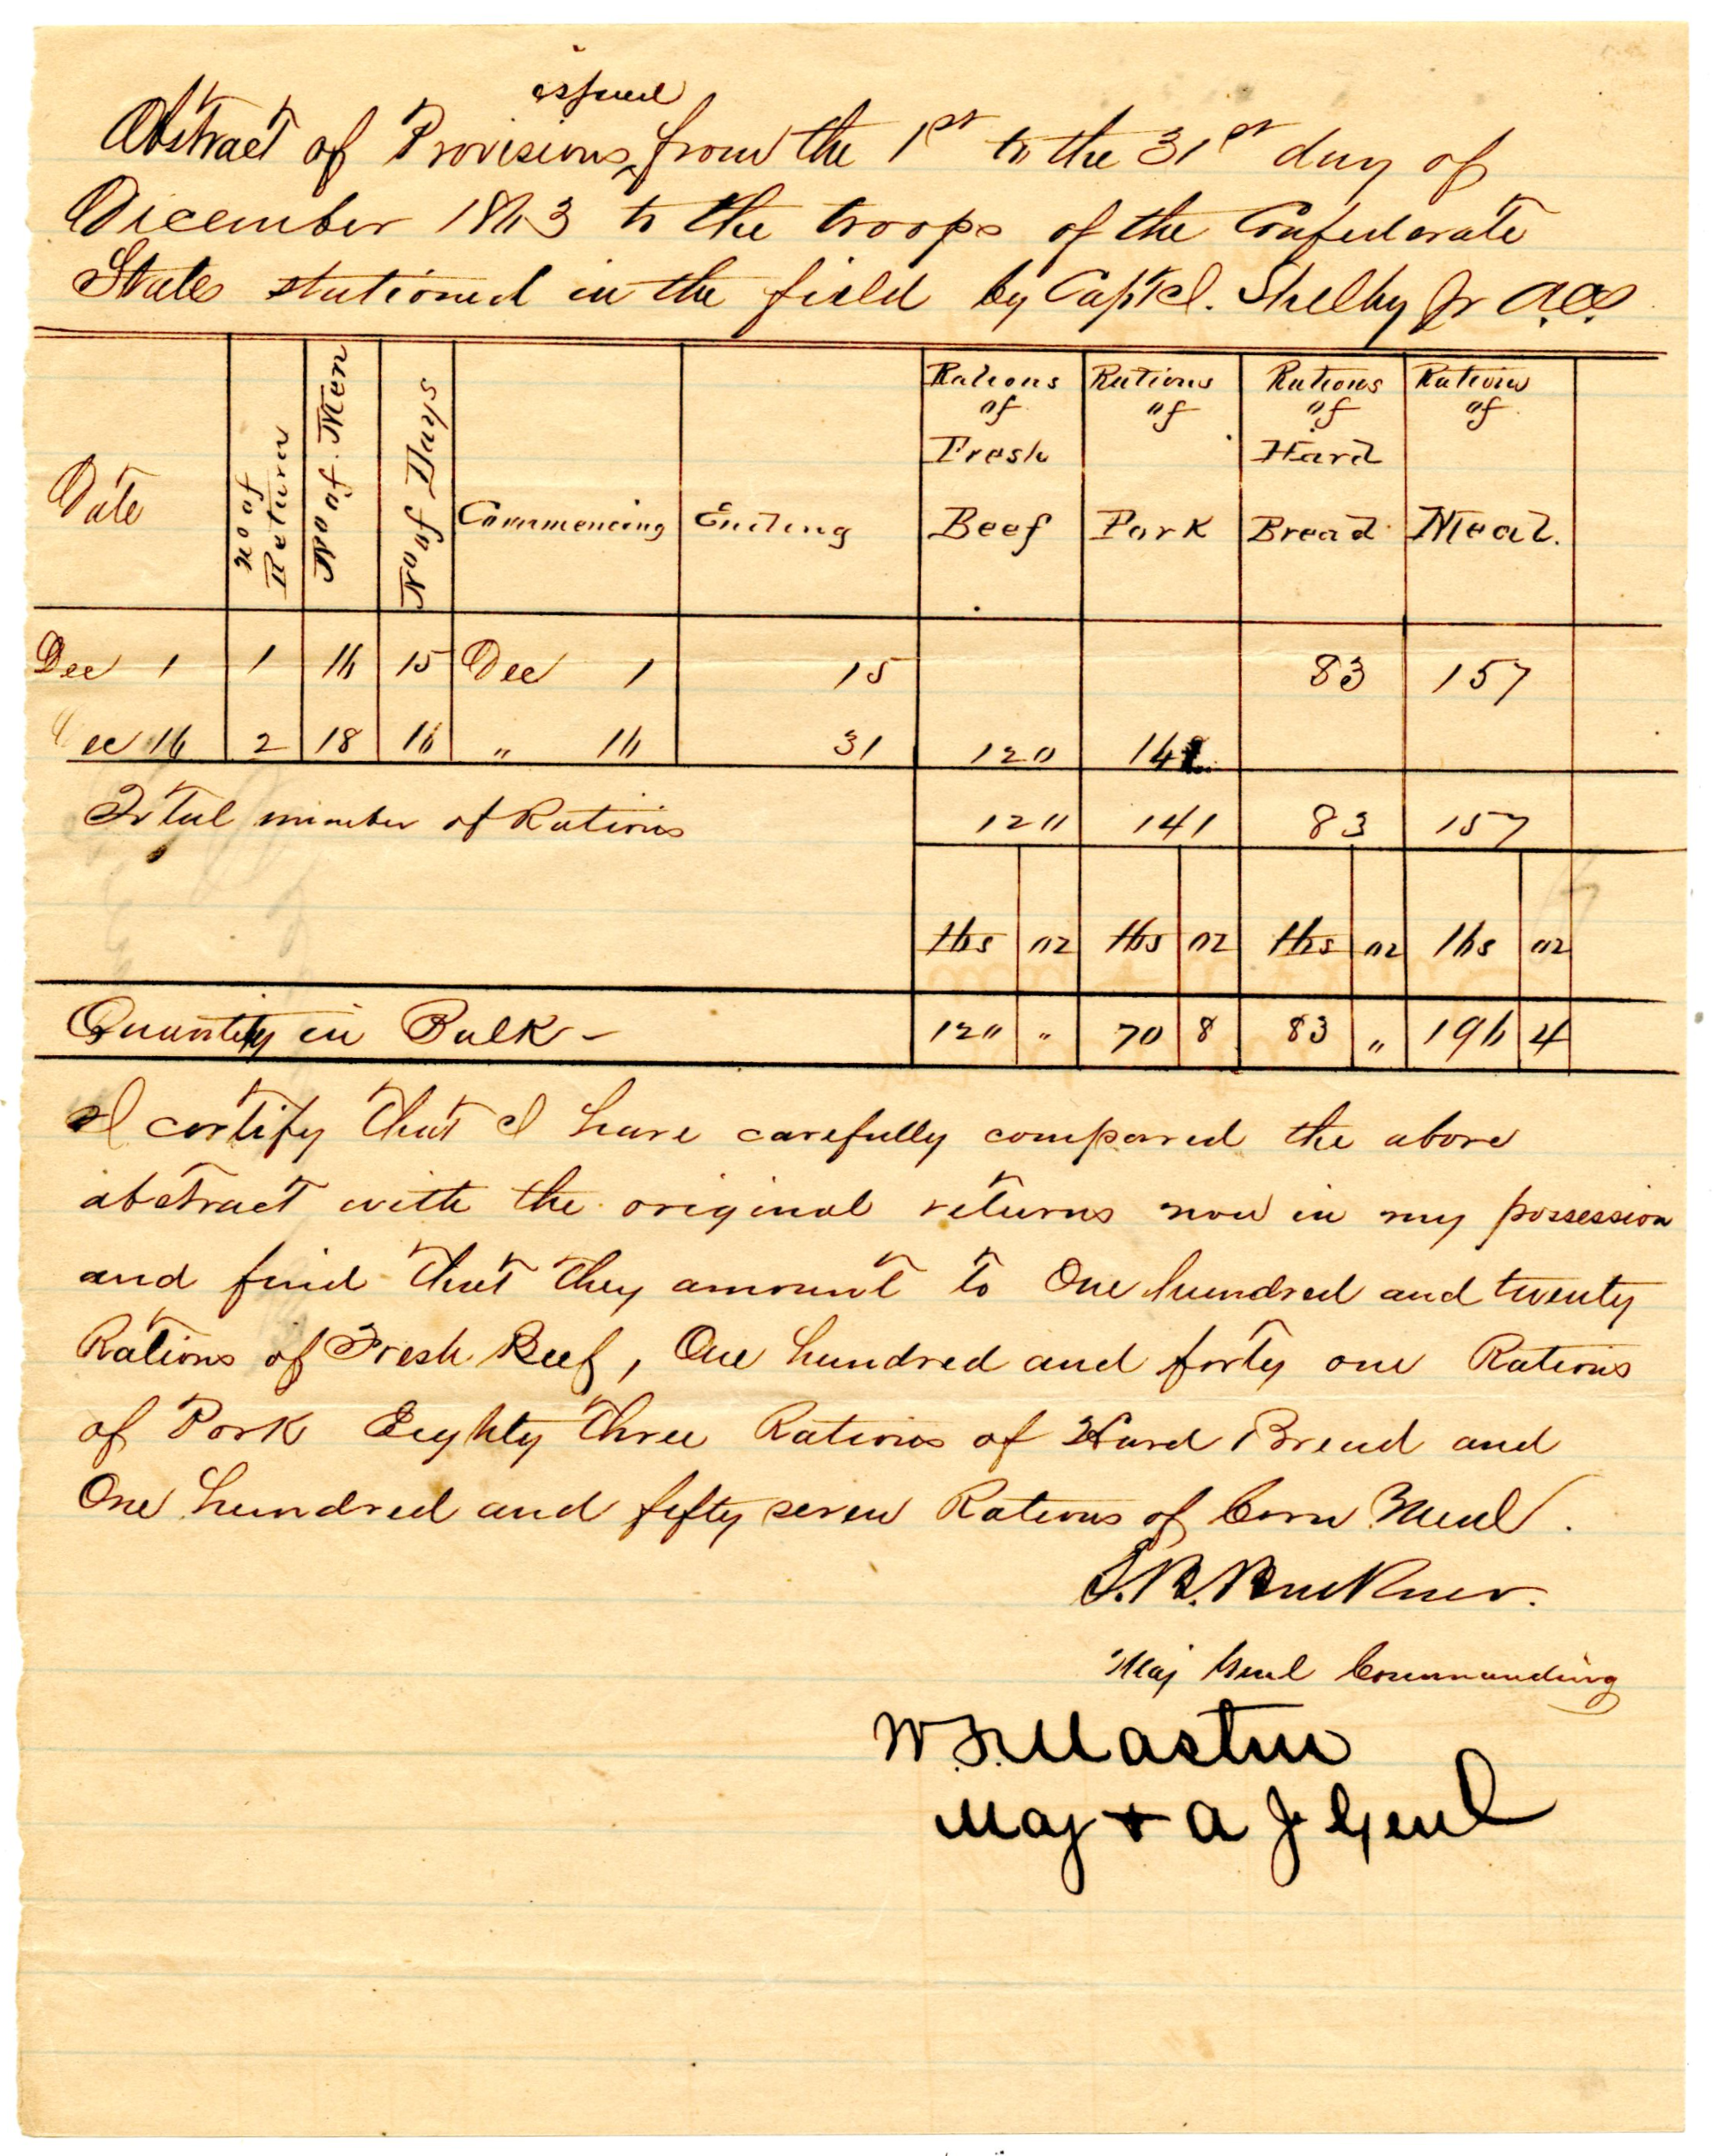 issued
Abstract of Provisions from the 1st to the 31st day of
December 1863 to the troops of the Confederate
States stationed in the field by Capt I. Shelby Jr A.C.S.
Date | No of Return | No of Men | No of Days | Commencing | Ending | Rations of Fresh Beef | Rations of Pork | Rations of Hard Bread | Rations of Meal.
Dec 1 | 1 | 16 | 15 | Dec 1 | 15 | | | 83 | 157
Dec 16 | 2 | 18 | 16 | " 16 | 31 | 120 | 141
Total number of Rations | 120 | 141 | 83 | 157
lbs | oz | lbs | oz | lbs | oz | lbs | oz
Quantity in Bulk - | 120 | " | 70 | 8 | 83 | " | 196 | 4
I certify that I have carefully compared the above
abstract with the original returns now in my possession
and find that they amount to One hundred and twenty
Rations of Fresh Beef, One hundred and forty one Rations
of Pork Eighty three Rations of Hard Bread and
One hundred and fifty seven Rations of Corn Meal.
S.B. Buckner.
Maj Genl Commanding
W.F. Mastin
Maj + A J Genl